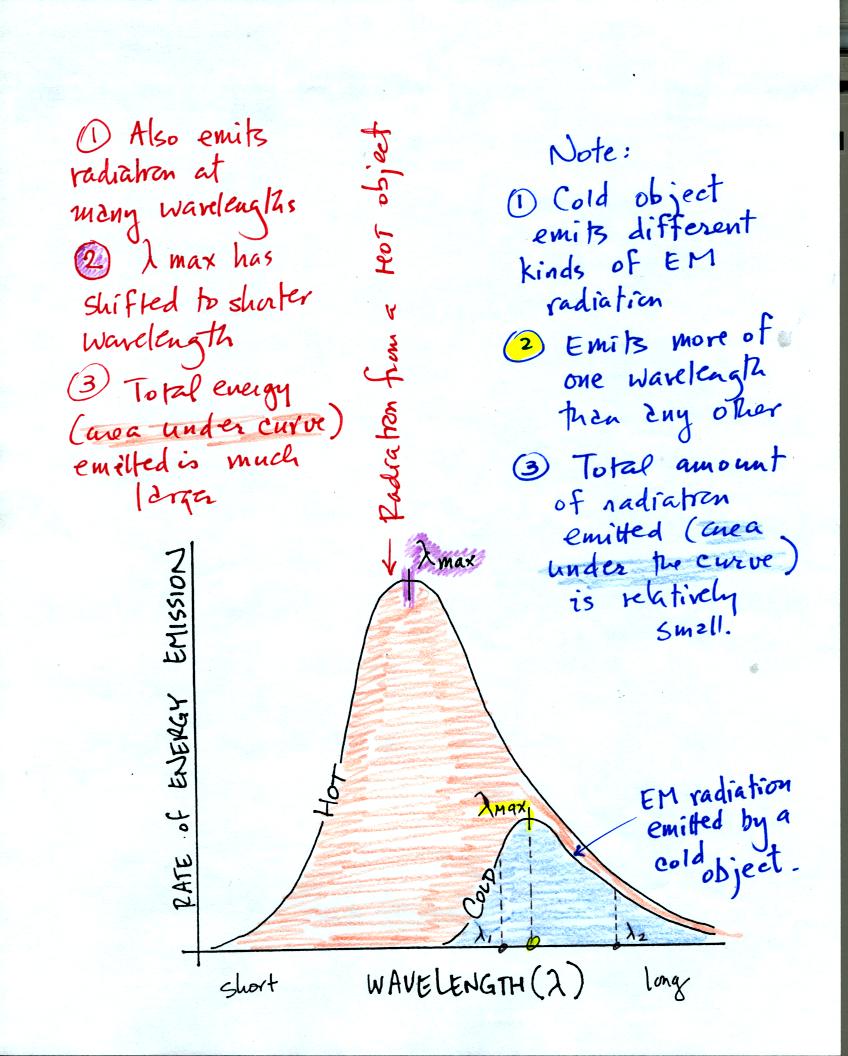 ① Also emits
radiation at
many wavelengths
② λ max has
shifted to shorter
wavelength
③ Total energy
(area under curve)
emitted is much
larger
← Radiation from a HOT object
Note:
① Cold object
emits different
kinds of EM
radiation
② Emits more of
one wavelength
than any other
③ Total amount
of radiation
emitted (area
under the curve)
is relatively
small.
λmax
RATE of ENERGY EMISSION
HOT
λmax
COLD
EM radiation
emitted by a
cold object.
λ₁
λ₂
short WAVELENGTH (λ) long